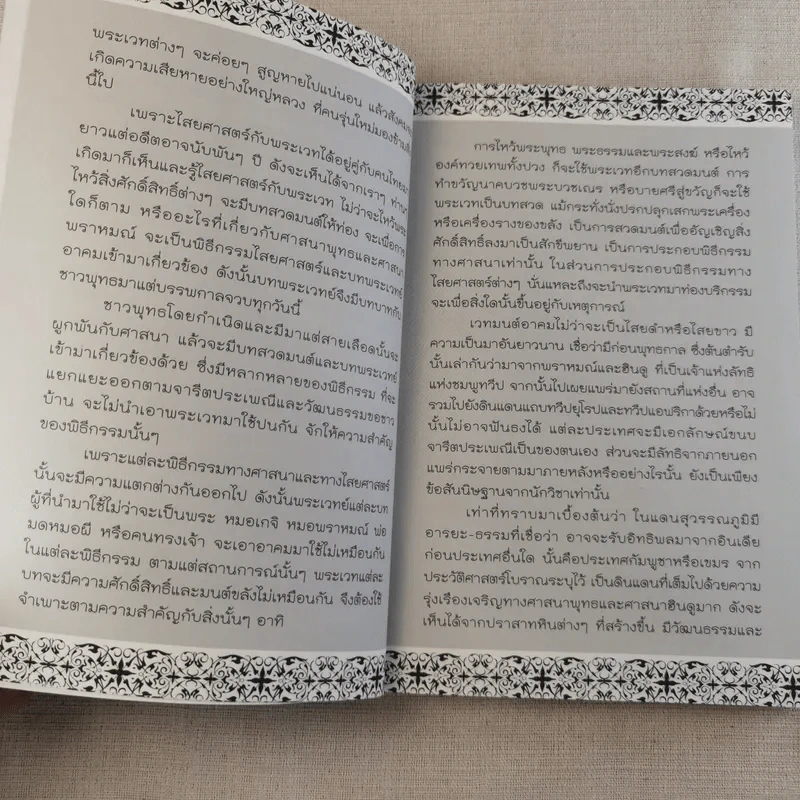 พระเวทต่างๆ จะค่อยๆ สูญหายไปแน่นอน แล้วสังคม
เกิดความเสียหายอย่างใหญ่หลวง ที่คนรุ่นใหม่มองข้าม
นี้ไป
เพราะไสยศาสตร์กับพระเวทได้อยู่คู่กับคนไทย
ยาวแต่อดีตอาจนับพันๆ ปี ดังจะเห็นได้จากเราๆ ท่านๆ
เกิดมาก็เห็นและรู้ไสยศาสตร์กับพระเวท ไม่ว่าจะไหว้พระ
ไหว้สิ่งศักดิ์สิทธิ์ต่างๆ จะมีบทสวดมนต์ให้ท่อง จะเพื่อการ
ใดก็ตาม หรืออะไรที่เกี่ยวกับศาสนาพุทธและศาสนา
พราหมณ์ จะเป็นพิธีกรรมไสยศาสตร์และบทพระเวทย์
อาคมเข้ามาเกี่ยวข้อง ดังนั้นบทพระเวทย์จึงมีบทบาทกับ
ชาวพุทธมาแต่บรรพกาลจวบทุกวันนี้
ชาวพุทธโดยกำเนิดและมีมาแต่สายเลือดนั้นจะ
ผูกพันกับศาสนา แล้วจะมีบทสวดมนต์และบทพระเวทย์
เข้ามาเกี่ยวข้องด้วย ซึ่งมีหลากหลายของพิธีกรรม ที่จะ
แยกแยะออกตามจารีตประเพณีและวัฒนธรรมขอชาว
บ้าน จะไม่นำเอาพระเวทมาใช้ปนกัน จักให้ความสำคัญ
ของพิธีกรรมนั้นๆ
เพราะแต่ละพิธีกรรมทางศาสนาและทางไสยศาสตร์
นั้นจะมีความแตกต่างกันออกไป ดังนั้นพระเวทย์แต่ละบท
ผู้ที่นำมาใช้ไม่ว่าจะเป็นพระ หมอเกจิ หมอพราหมณ์ พ่อ
มดหมอผี หรือคนทรงเจ้า จะเอาอาคมมาใช้ไม่เหมือนกัน
ในแต่ละพิธีกรรม ตามแต่สถานการณ์นั้นๆ พระเวทแต่ละ
บทจะมีความศักดิ์สิทธิ์และมนต์ขลังไม่เหมือนกัน จึงต้องใช้
จำเพาะตามความสำคัญกับสิ่งนั้นๆ อาทิ
การไหว้พระพุทธ พระธรรมและพระสงฆ์ หรือไหว้
องค์ทวยเทพทั้งปวง ก็จะใช้พระเวทอีกบทสวดมนต์ การ
ทำขวัญนาคบวชพระบวชเณร หรือบายศรีสู่ขวัญก็จะใช้
พระเวทเป็นบทสวด แม้กระทั่งนั่งปรกปลุกเสกพระเครื่อง
หรือเครื่องรางของขลัง เป็นการสวดมนต์เพื่ออัญเชิญสิ่ง
ศักดิ์สิทธิ์ลงมาเป็นสักขีพยาน เป็นการประกอบพิธีกรรม
ทางศาสนาเท่านั้น ในส่วนการประกอบพิธีกรรมทาง
ไสยศาสตร์ต่างๆ นั่นแหละถึงจะนำพระเวทมาท่องบริกรรม
จะเพื่อสิ่งใดนั้นขึ้นอยู่กับเหตุการณ์
เวทมนต์อาคมไม่ว่าจะเป็นไสยดำหรือไสยขาว มี
ความเป็นมาอันยาวนาน เชื่อว่ามีก่อนพุทธกาล ซึ่งต้นตำรับ
นั้นเล่ากันว่ามาจากพราหมณ์และฮินดู ที่เป็นเจ้าแห่งลัทธิ
แห่งชมพูทวีป จากนั้นไปเผยแพร่มายังสถานที่แห่งอื่น อาจ
รวมไปยังดินแดนแถบทวีปยุโรปและทวีปแอฟริกาด้วยหรือไม่
นั้นไม่อาจฟันธงได้ แต่ละประเทศจะมีเอกลักษณ์ขนบ
จารีตประเพณีเป็นของตนเอง ส่วนจะมีลัทธิจากภายนอก
แพร่กระจายตามมาภายหลังหรืออย่างไรนั้น ยังเป็นเพียง
ข้อสันนิษฐานจากนักวิชาเท่านั้น
เท่าที่ทราบมาเบื้องต้นว่า ในแดนสุวรรณภูมิมี
อารยะ-ธรรมที่เชื่อว่า อาจจะรับอิทธิพลมาจากอินเดีย
ก่อนประเทศอื่นใด นั้นคือประเทศกัมพูชาหรือเขมร จาก
ประวัติศาสตร์โบราณระบุไว้ เป็นดินแดนที่เต็มไปด้วยความ
รุ่งเรืองเจริญทางศาสนาพุทธและศาสนาฮินดูมาก ดังจะ
เห็นได้จากปราสาทหินต่างๆ ที่สร้างขึ้น มีวัฒนธรรมและ